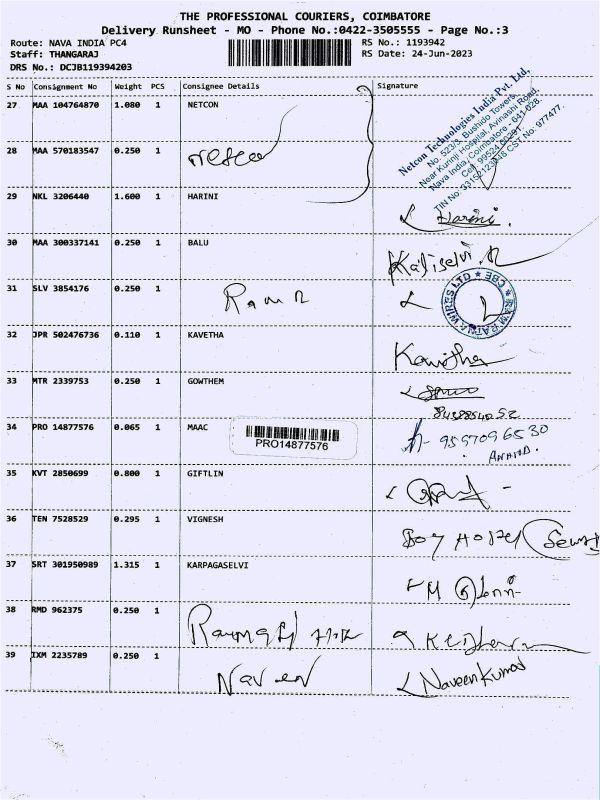 THE PROFESSIONAL COURIERS, COIMBATORE
Delivery Runsheet - MO - Phone No.:0422-3505555 - Page No.:3
Route: NAVA INDIA PC4 RS No.: 1193942
Staff: THANGARAJ RS Date: 24-Jun-2023
DRS No.: DCJB119394203
S No Consignment No Weight PCS Consignee Details Signature
27 MAA 104764870 1.080 1 NETCON
Netcon Technologies India Pvt. Ltd,
No. 523/3, Bushido Towers,
Near Kunnji Hospital, Avinashi Road,
Nava India, Coimbatore - 641 028.
28 MAA 570183547 0.250 1 Netcon
29 NKL 3206440 1.600 1 HARINI Harini.
30 MAA 300337141 0.250 1 BALU Kaliselvi.R
31 SLV 3854176 0.250 1 Ram R
RAM RATNA WIRES LTD ★ CBE ★
32 JPR 502476736 0.110 1 KAVETHA Kavitha
33 MTR 2339753 0.250 1 GOWTHEM
34 PRO 14877576 0.065 1 MAAC PRO14877576 9597096530
ANAND.
35 KVT 2850699 0.800 1 GIFTLIN
36 TEN 7528529 0.295 1 VIGNESH Boy Hostel
37 SRT 301950989 1.315 1 KARPAGASELVI
38 RMD 962375 0.250 1
39 IXM 2235789 0.250 1 Naven Naveen Kumar